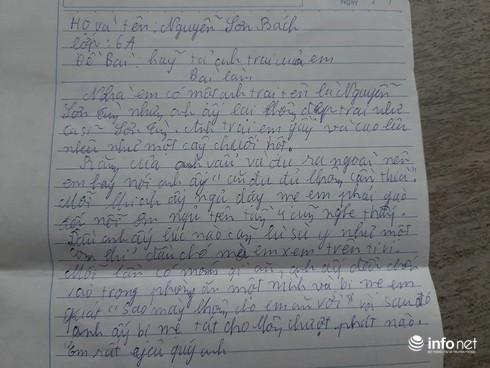 Họ và tên: Nguyễn Sơn Bách
Lớp: 6A
Đề Bài: hãy tả anh trai của em
Bài làm
Nhà em có một anh trai tên là Nguyễn
Sơn Tùng nhưng anh ấy lại không đẹp trai như
ca sĩ Sơn Tùng. Anh trai em gầy và cao lêu
nêu như một cây chuối hột.
Răng của anh vẩu và đu ra ngoài nên
em hay nói anh ấy "ăn đu đủ không cần thìa".
Mỗi khi anh ấy ngủ dậy mẹ em phải gào
đến nỗi ông ngụ trên tầng 4 cũng nghe thấy.
Đầu anh ấy lúc nào cũng bù sù y như một
con thú dấu cho mẹ em xem trên ti vi.
Mỗi lần có món gì ăn, anh ấy đều chốn
vào trong phòng ăn một mình và bị mẹ em
quát "sao mày không cho em ăn với" và sau đó
anh ấy bị mẹ tát cho không chượt phát nào.
Em rất quý anh
infonet